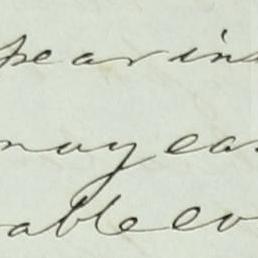 pear in
may eas
able co